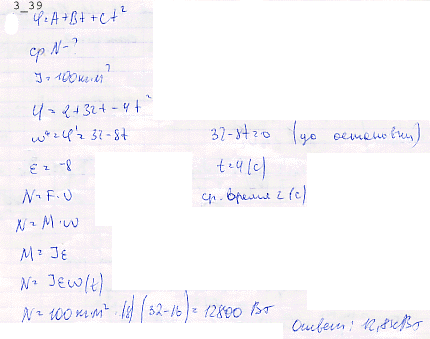 3_39
φ=A+Bt+Ct²
ср N-?
J=100кг·м²
φ=2+32t-4t²
ω=φ'=32-8t 32-8t=0 (до остановки)
ε=-8 t=4(с)
N=F·υ ср. время 2(с)
N=M·ω
M=Jε
N=Jεω(t)
N=100кг·м²·|8|(32-16)=12800 Вт
Ответ: 12,8кВт